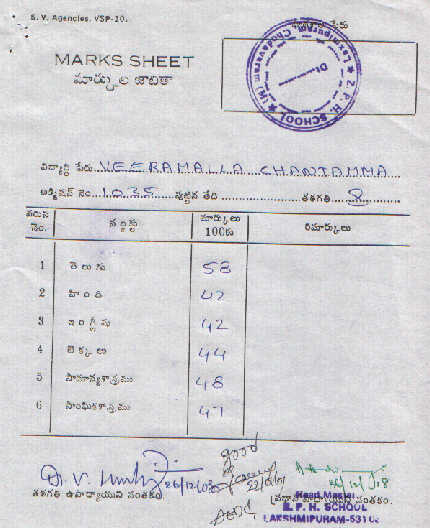 S. V. Agencies, VSP-20.
MARKS SHEET
మార్కుల జాబితా
Z. P. H. SCHOOL
విద్యార్థి పేరు VEERAMALLA CHANTAMMA
అడ్మిషన్ నెం. 1035 పుట్టిన తేది తరగతి 8
వరుస నెం. సబ్జక్టు మార్కులు 100కు రిమార్కులు
1 తెలుగు 58
2 హింది 42
3 ఇంగ్లీషు 42
4 లెక్కలు 44
5 సామాన్యశాస్త్రము 48
6 సాంఘికశాస్త్రము 47
good
26/12/08
తరగతి ఉపాధ్యాయుని సంతకం.
(ప్రధానోపాధ్యాయుని సంతకం.
Head Master
Z. P. H. SCHOOL
LAKSHMIPURAM-5310